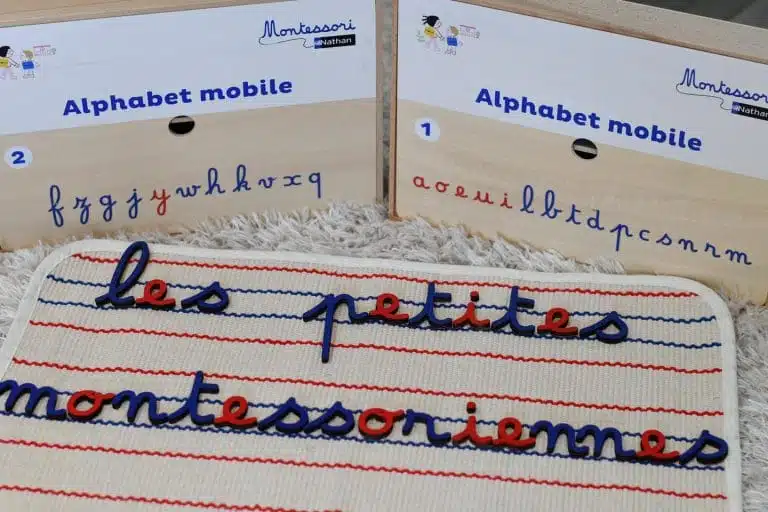 Montessori
Nathan
Alphabet mobile
2
f z g j y w h k v x q
Montessori
Nathan
Alphabet mobile
1
a o e u i l b t d p c s n r m
les petites
montessoriennes